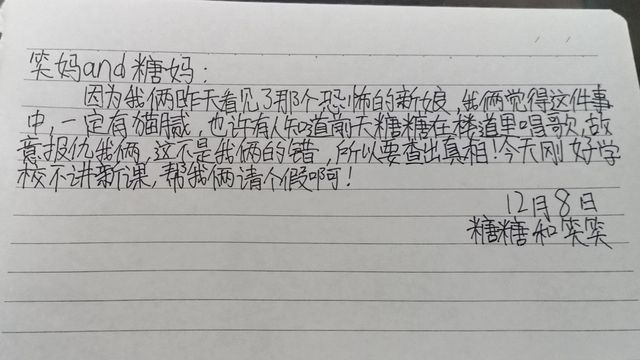 笑妈and糖妈：
因为我俩昨天看见了那个恐怖的新娘，我俩觉得这件事
中，一定有猫腻，也许有人知道前天糖糖在楼道里唱歌，故
意报仇我俩，这不是我俩的错，所以要查出真相！今天刚好学
校不讲新课，帮我俩请个假啊！
12月8日
糖糖和笑笑